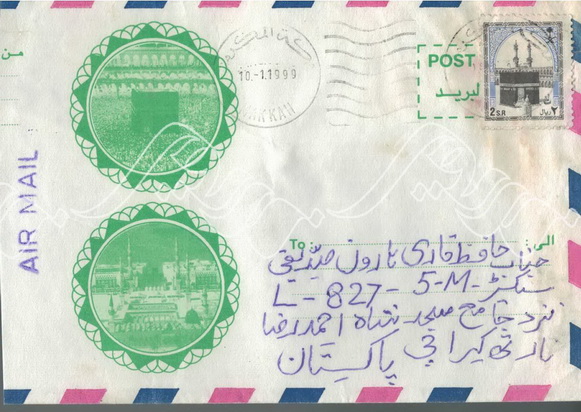 مكة المكرمة
10.-1.1999
MAKKAH
POST
البريد
2 S.R
٢
من
AIR MAIL
To:
الى
جناب حافظ قاری ہارون صدیقی
سیکٹر - 5-M - L-827
نزد جامع مسجد شاہ احمد رضا
نارتھ کراچی پاکستان